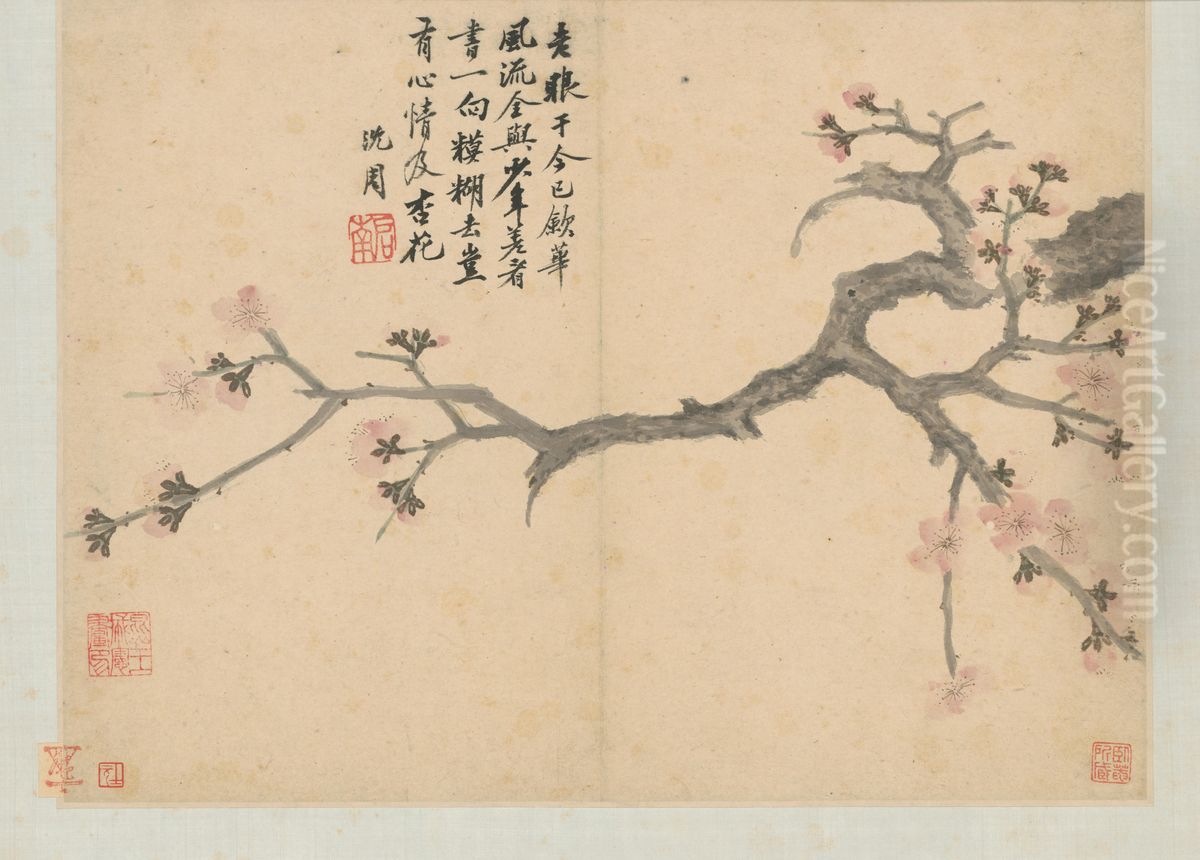 老眼于今已歛華
風流全與少年差看
書一向糢糊去豈
有心情及杏花
沈周
啟南
臥菴所藏
NiceArtGallery.com